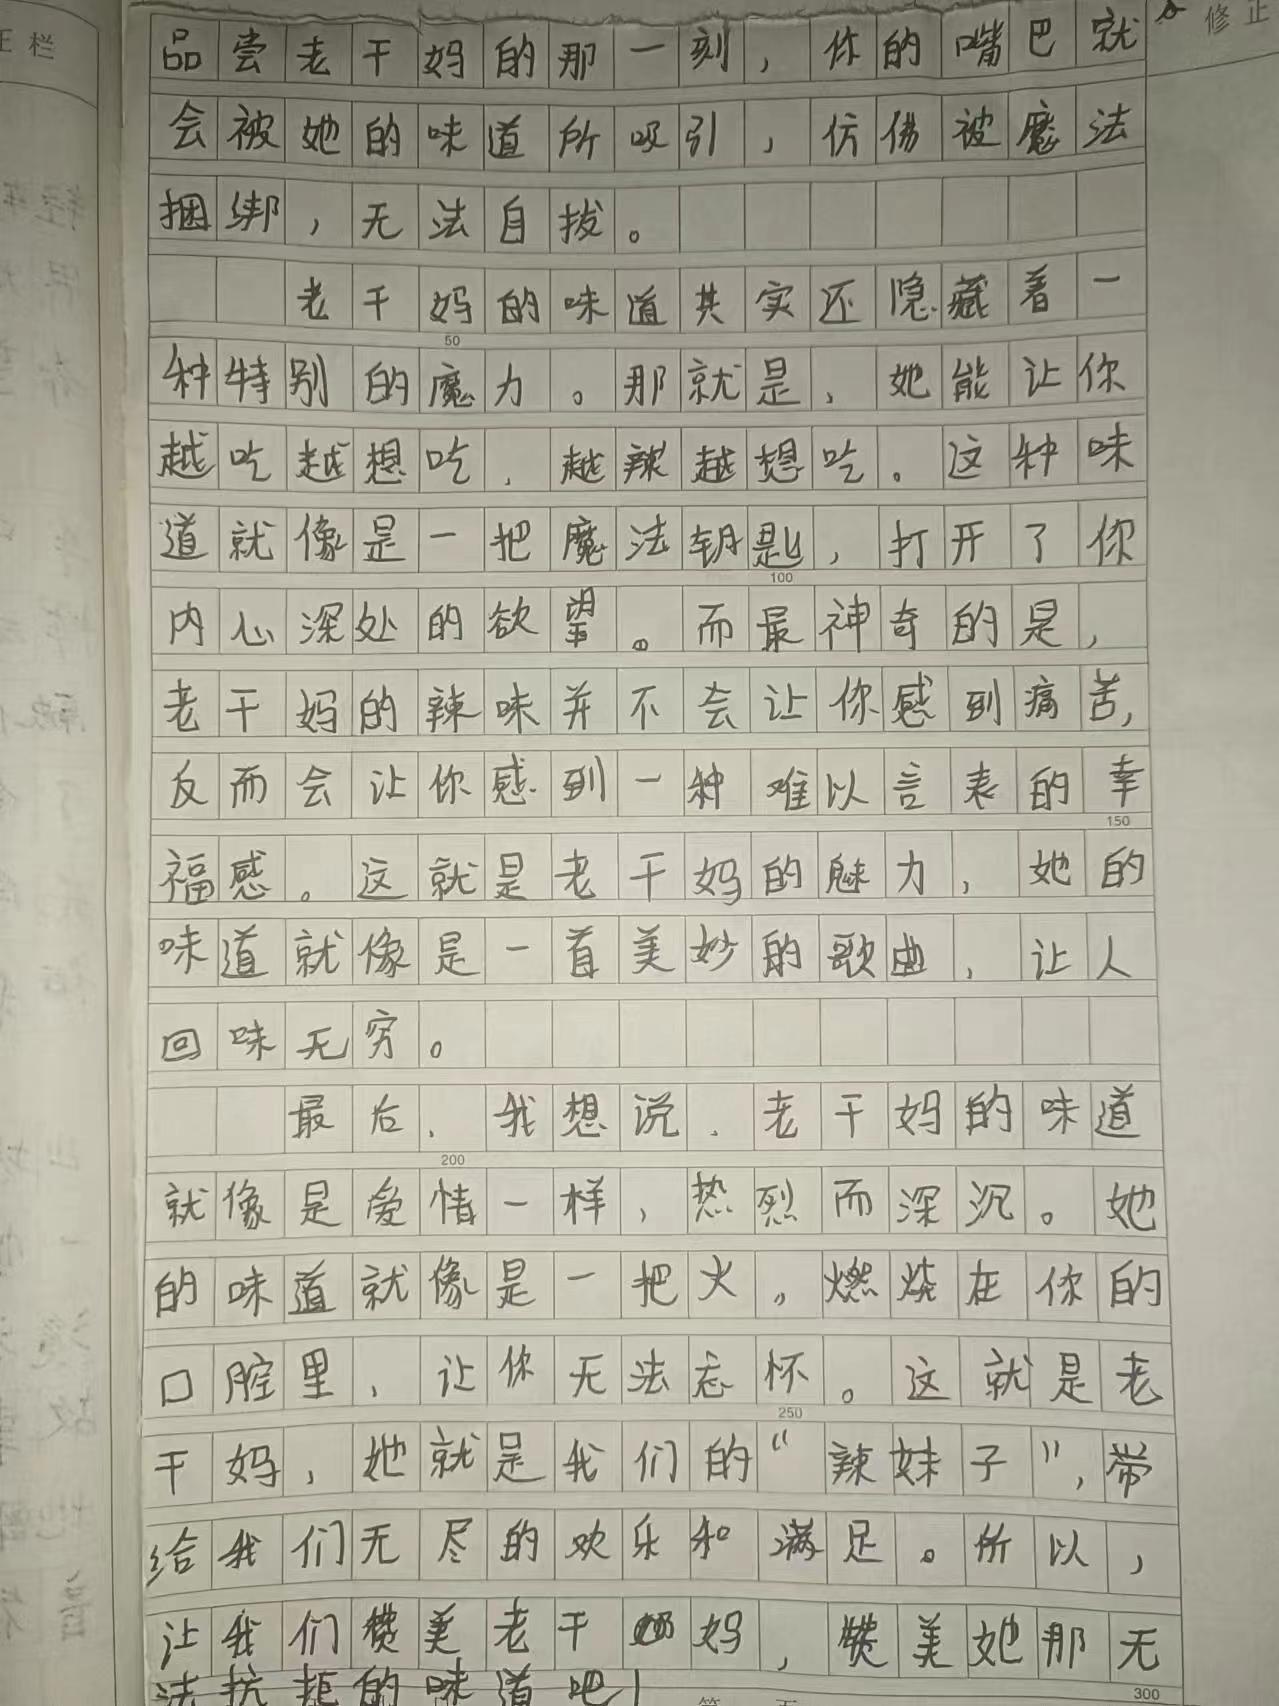 正栏
修正
品尝老干妈的那一刻，你的嘴巴就
会被她的味道所吸引，仿佛被魔法
捆绑，无法自拔。
老干妈的味道其实还隐藏着一
种特别的魔力。那就是，她能让你
50
越吃越想吃，越辣越想吃。这种味
道就像是一把魔法钥匙，打开了你
100
内心深处的欲望。而最神奇的是，
老干妈的辣味并不会让你感到痛苦，
反而会让你感到一种难以言表的幸
150
福感。这就是老干妈的魅力，她的
味道就像是一首美妙的歌曲，让人
回味无穷。
最后，我想说，老干妈的味道
200
就像是爱情一样，热烈而深沉。她
的味道就像是一把火，燃烧在你的
口腔里，让你无法忘怀。这就是老
250
干妈，她就是我们的“辣妹子”，带
给我们无尽的欢乐和满足。所以，
让我们赞美老干妈，赞美她那无
300
法抗拒的味道吧！